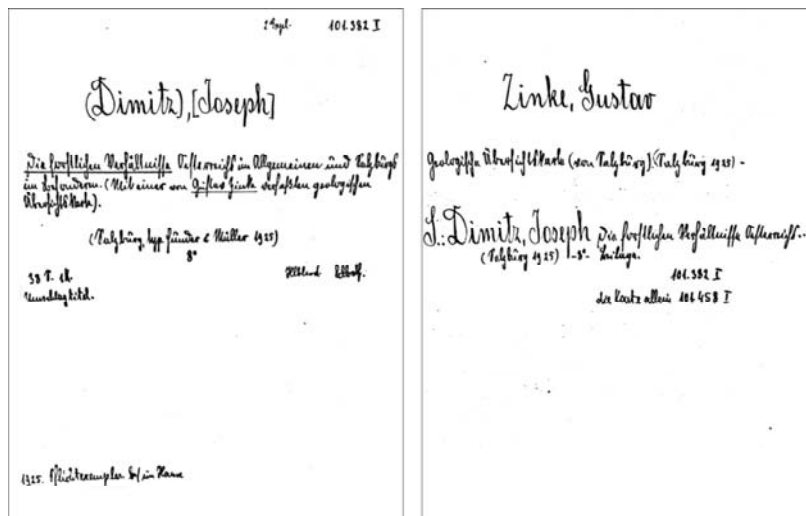 2 Expl. 101.382 I
(Dimitz), [Joseph]
Die forstlichen Verhältnisse Oesterreichs im Allgemeinen und Salzburgs
im Besondern. (Mit einer von Gustav Zinke verfaßten geologischen
Übersichtskarte).
(Salzburg, typ. Funder & Müller 1925)
8°
38 S. 1 K.
Umschlagtitel.
1925. Pflichtexemplar
Zinke, Gustav
Geologische Übersichtskarte (von Salzburg). (Salzburg 1925) -
S.: Dimitz, Joseph Die forstlichen Verhältnisse Oesterreichs..
(Salzburg 1925) -8°- Beilage.
101.382 I
die Karte allein 101.458 I